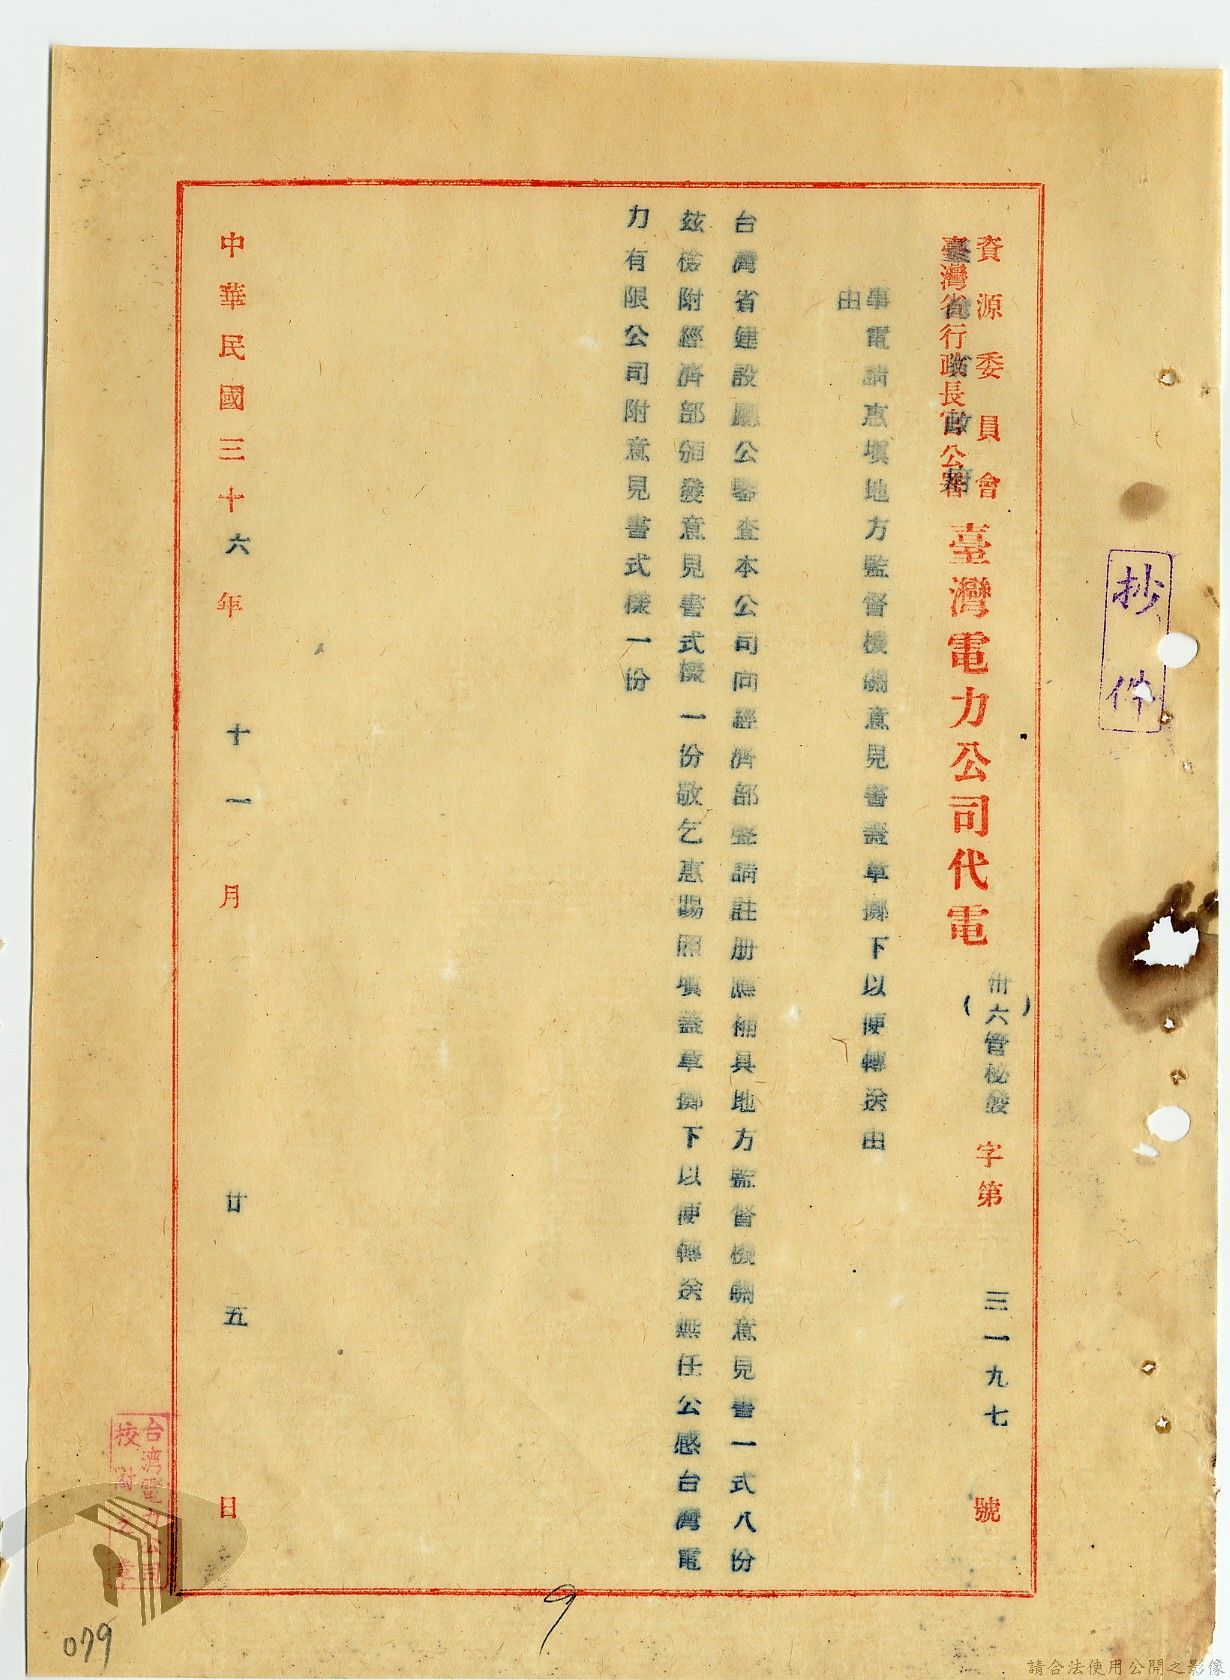 抄件
資源委員會
臺灣省行政長官公署
臺灣省政府
臺灣電力公司代電
(卅六管秘發)字第三一九七號
事由
電請惠填地方監督機關意見書蓋章擲下以便轉送由
台灣省建設廳公鑒查本公司向經濟部聲請註册應補具地方監督機關意見書一式八份
茲檢附經濟部頒發意見書式樣一份敬乞惠賜照填蓋章擲下以便轉送無任公感台灣電
力有限公司附意見書式樣一份
中華民國三十六年十一月廿五日
台湾電力公司
校對之章
079
9
請合法使用公開之影像